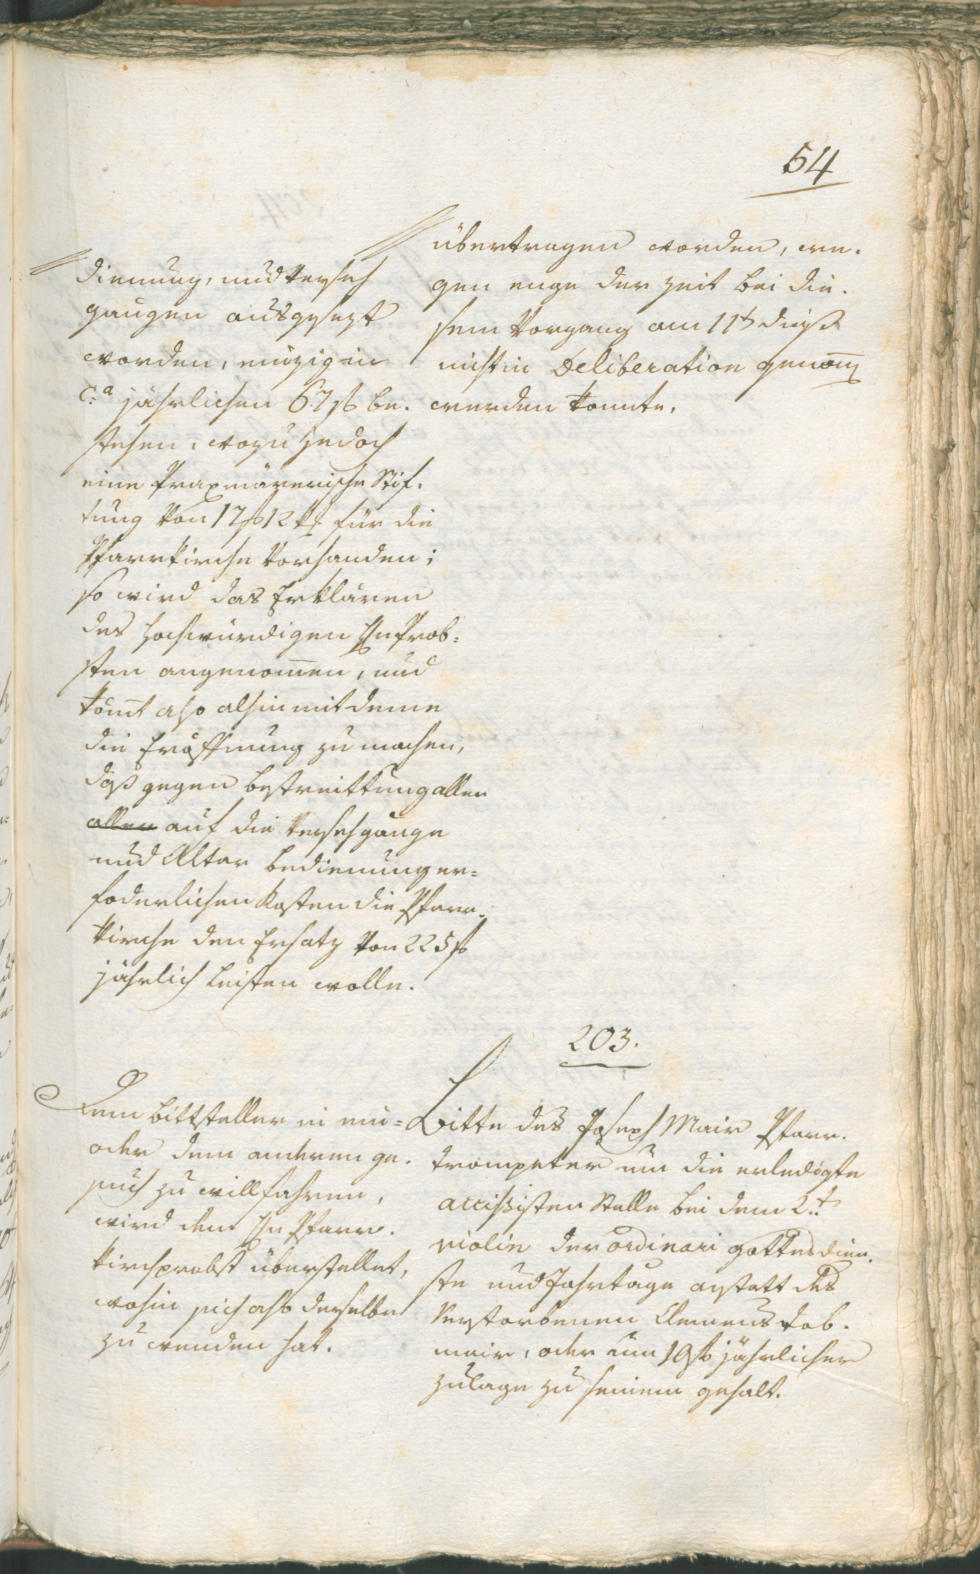 54
// dienung, und Verseh
gängen ausgesezt
worden, einzig in
c.a jährlichen 67 f be-
stehen, wozu jedoch
eine Praxmärerische Stif-
tung von 17 f 12 xr für die
Pfarrkirche vorhanden;
so wird das Erklären
des hochwürdigen Hn Prob-
sten angenom̄en, und
kom̄t also alhin mit deme
die Eröffnung zu machen,
daß gegen bestreittung aller
allen auf die Versehgänge
und Altar bedienung er-
foderlichen Kosten die Pfarr-
kirche den Ersatz von 225 f
jährlich leisten wolle.
// übertragen worden, we-
gen enge der Zeit bei die-
sem Vorgang am 11t dieß
nicht in Deliberation genom̄
werden konnte.
203.
Dem Bittsteller in ein-
oder dem anderen Ge-
such zu willfahren,
wird dem Hn Pfarr-
kirchprobst überstellet,
wohin sich also derselbe
zu wenden hat.
Bitte des Joseph Mair Pfarr-
trompeter um die erledigte
accissisten Stelle bei dem 2.t
violin der ordinari gottesdien-
ste und Jahrtage anstatt des
Verstorbenen Clemens Dob-
mair, oder um 19 f jährlicher
Zulage zu seinem gehalt.